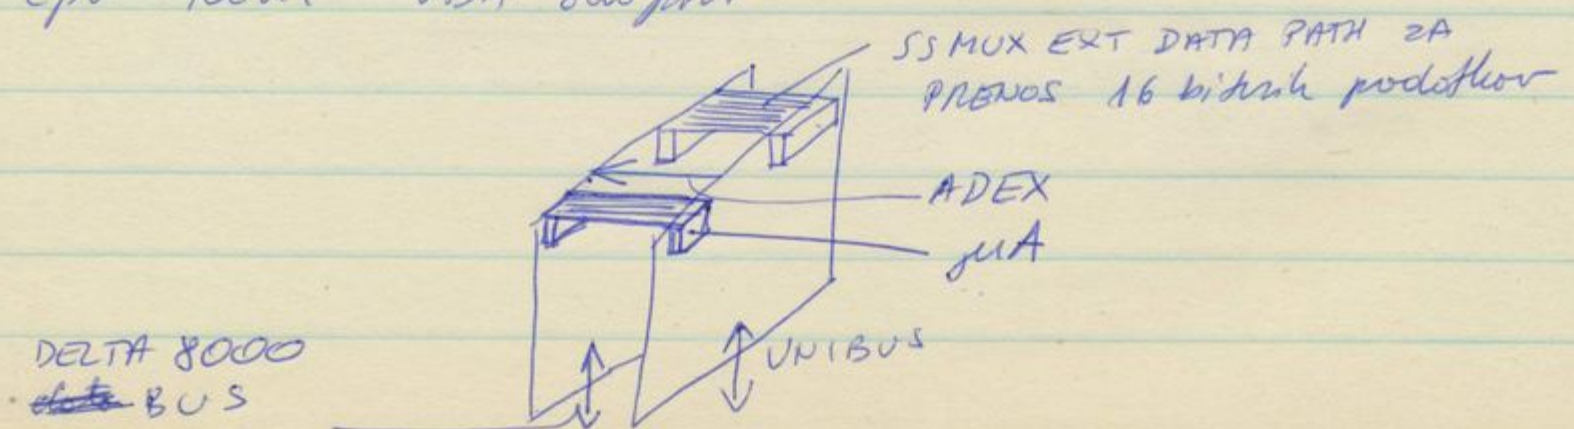 SSMUX EXT DATA PATH ZA
PRENOS 16 bitnih podatkov
ADEX
μA
UNIBUS
DELTA 8000
BUS